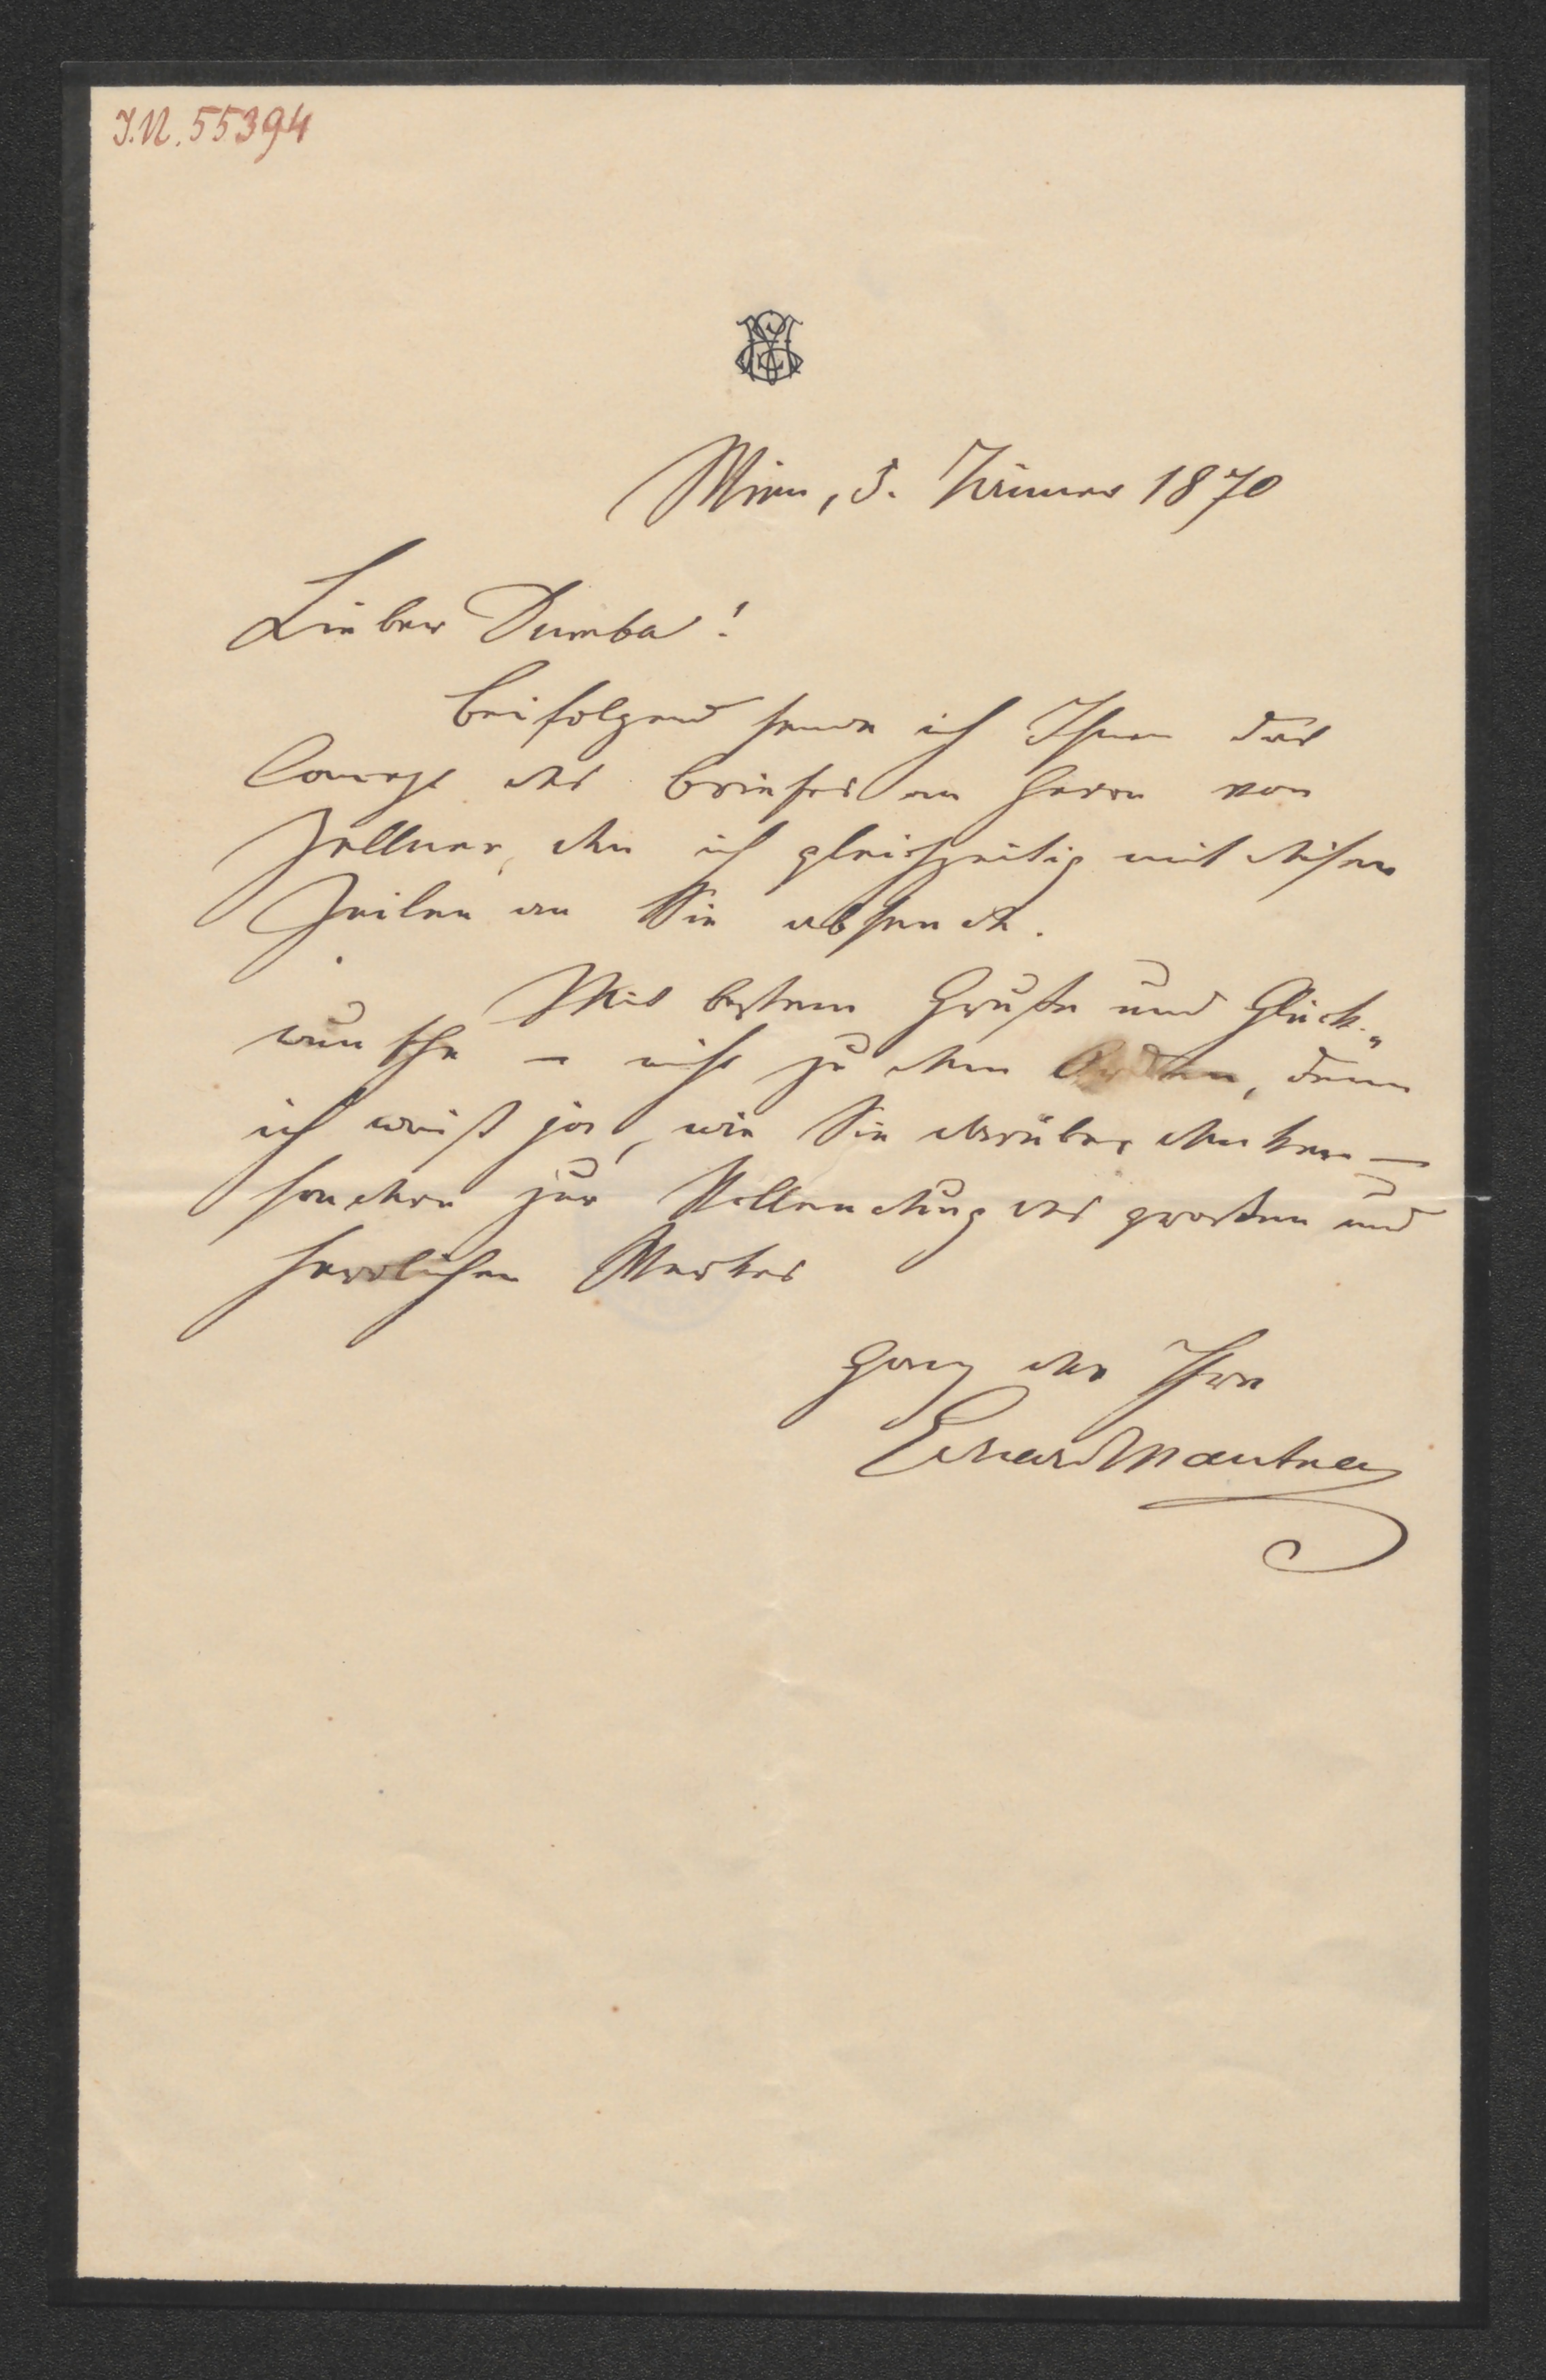 I.N. 55394
Wien, 5. Jänner 1870
Lieber Dumba!
Beifolgend sende ich Ihnen das
Concept des Briefes an Herrn von
Zellner, den ich gleichzeitig mit diesen
Zeilen an Sie absende.
Mit bestem Gruße und Glück-
wunsche – nicht zu dem Orden, denn
ich weiß ja, wie Sie darüber denken –
sondern zur Vollendung des großen und
herrlichen Werkes
Ganz der Ihre
Eduard Mautner